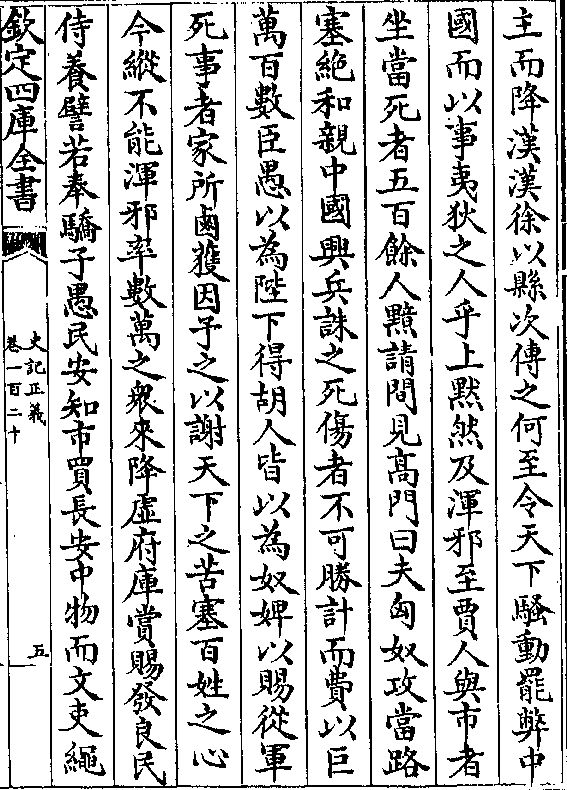 主而降漢漢徐以縣次傳之何至令天下騷動罷弊中
國而以事夷狄之人乎上黙然及渾邪至賈人與市者
坐當死者五百餘人黯請間見髙門曰夫匈奴攻當路
塞絶和親中國興兵誅之死傷者不可勝計而費以巨
萬百數臣愚以為陛下得胡人皆以為奴婢以賜從軍
死事者家所鹵獲因予之以謝天下之苦塞百姓之心
今縱不能渾邪率數萬之衆來降虚府庫賞賜發良民
侍養譬若奉驕子愚民安知市買長安中物而文吏繩
欽定四庫全書
史記正義
卷一百二十
五